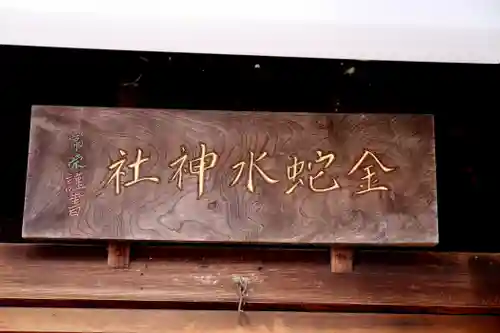 金蛇水神社
謹書